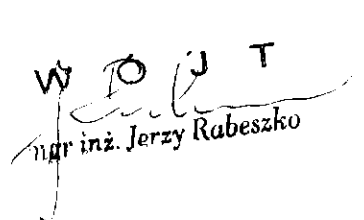 W O J T
mgr inż. Jerzy Rabeszko